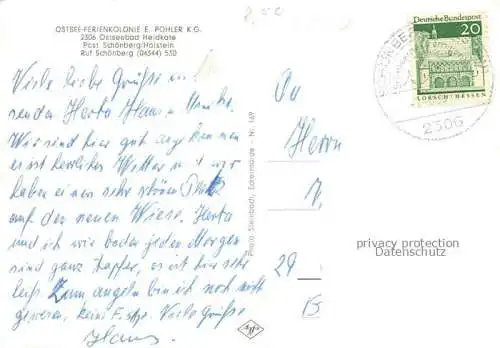 OSTSEE-FERIENKOLONIE E. POHLER K.G.
2306 Ostseebad Heidkate
Post Schönberg/Holstein
Ruf Schönberg (04344) 530
Viele liebe Grüße
senden Herta Hans
Wir sind hier gut angekommen
es ist herrliches Wetter und wir
haben einen sehr schönen Platz
auf der neuen Wiese. Herta
und ich wir baden jeden Morgen
sind ganz tapfer, es ist hier sehr
Zum angeln bin ich noch nicht
gewesen, keine Viele Grüße
Hans
Photo Steinbach, Nr. 149
Agfa
An
Herrn
29
B
Deutsche Bundespost
20
LORSCH/HESSEN
2306
privacy protection
Datenschutz